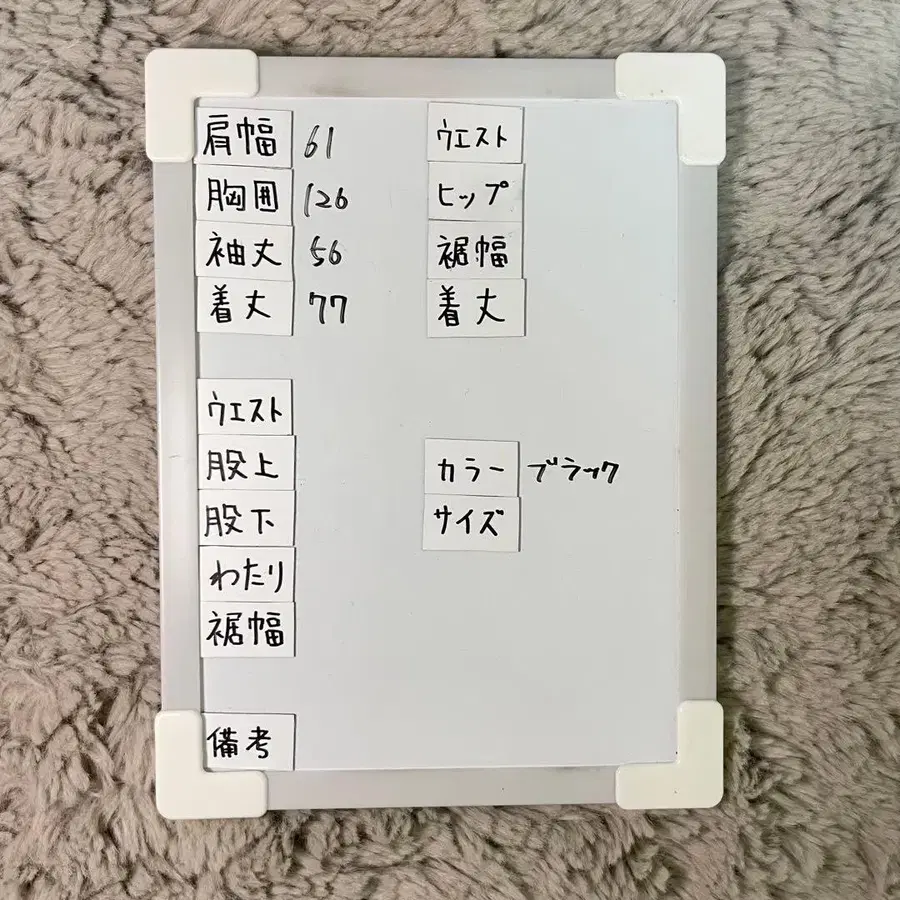 肩幅 61
胸囲 126
袖丈 56
着丈 77
ウエスト
股上
股下
わたり
裾幅
備考
ウエスト
ヒップ
裾幅
着丈
カラー ブラック
サイズ